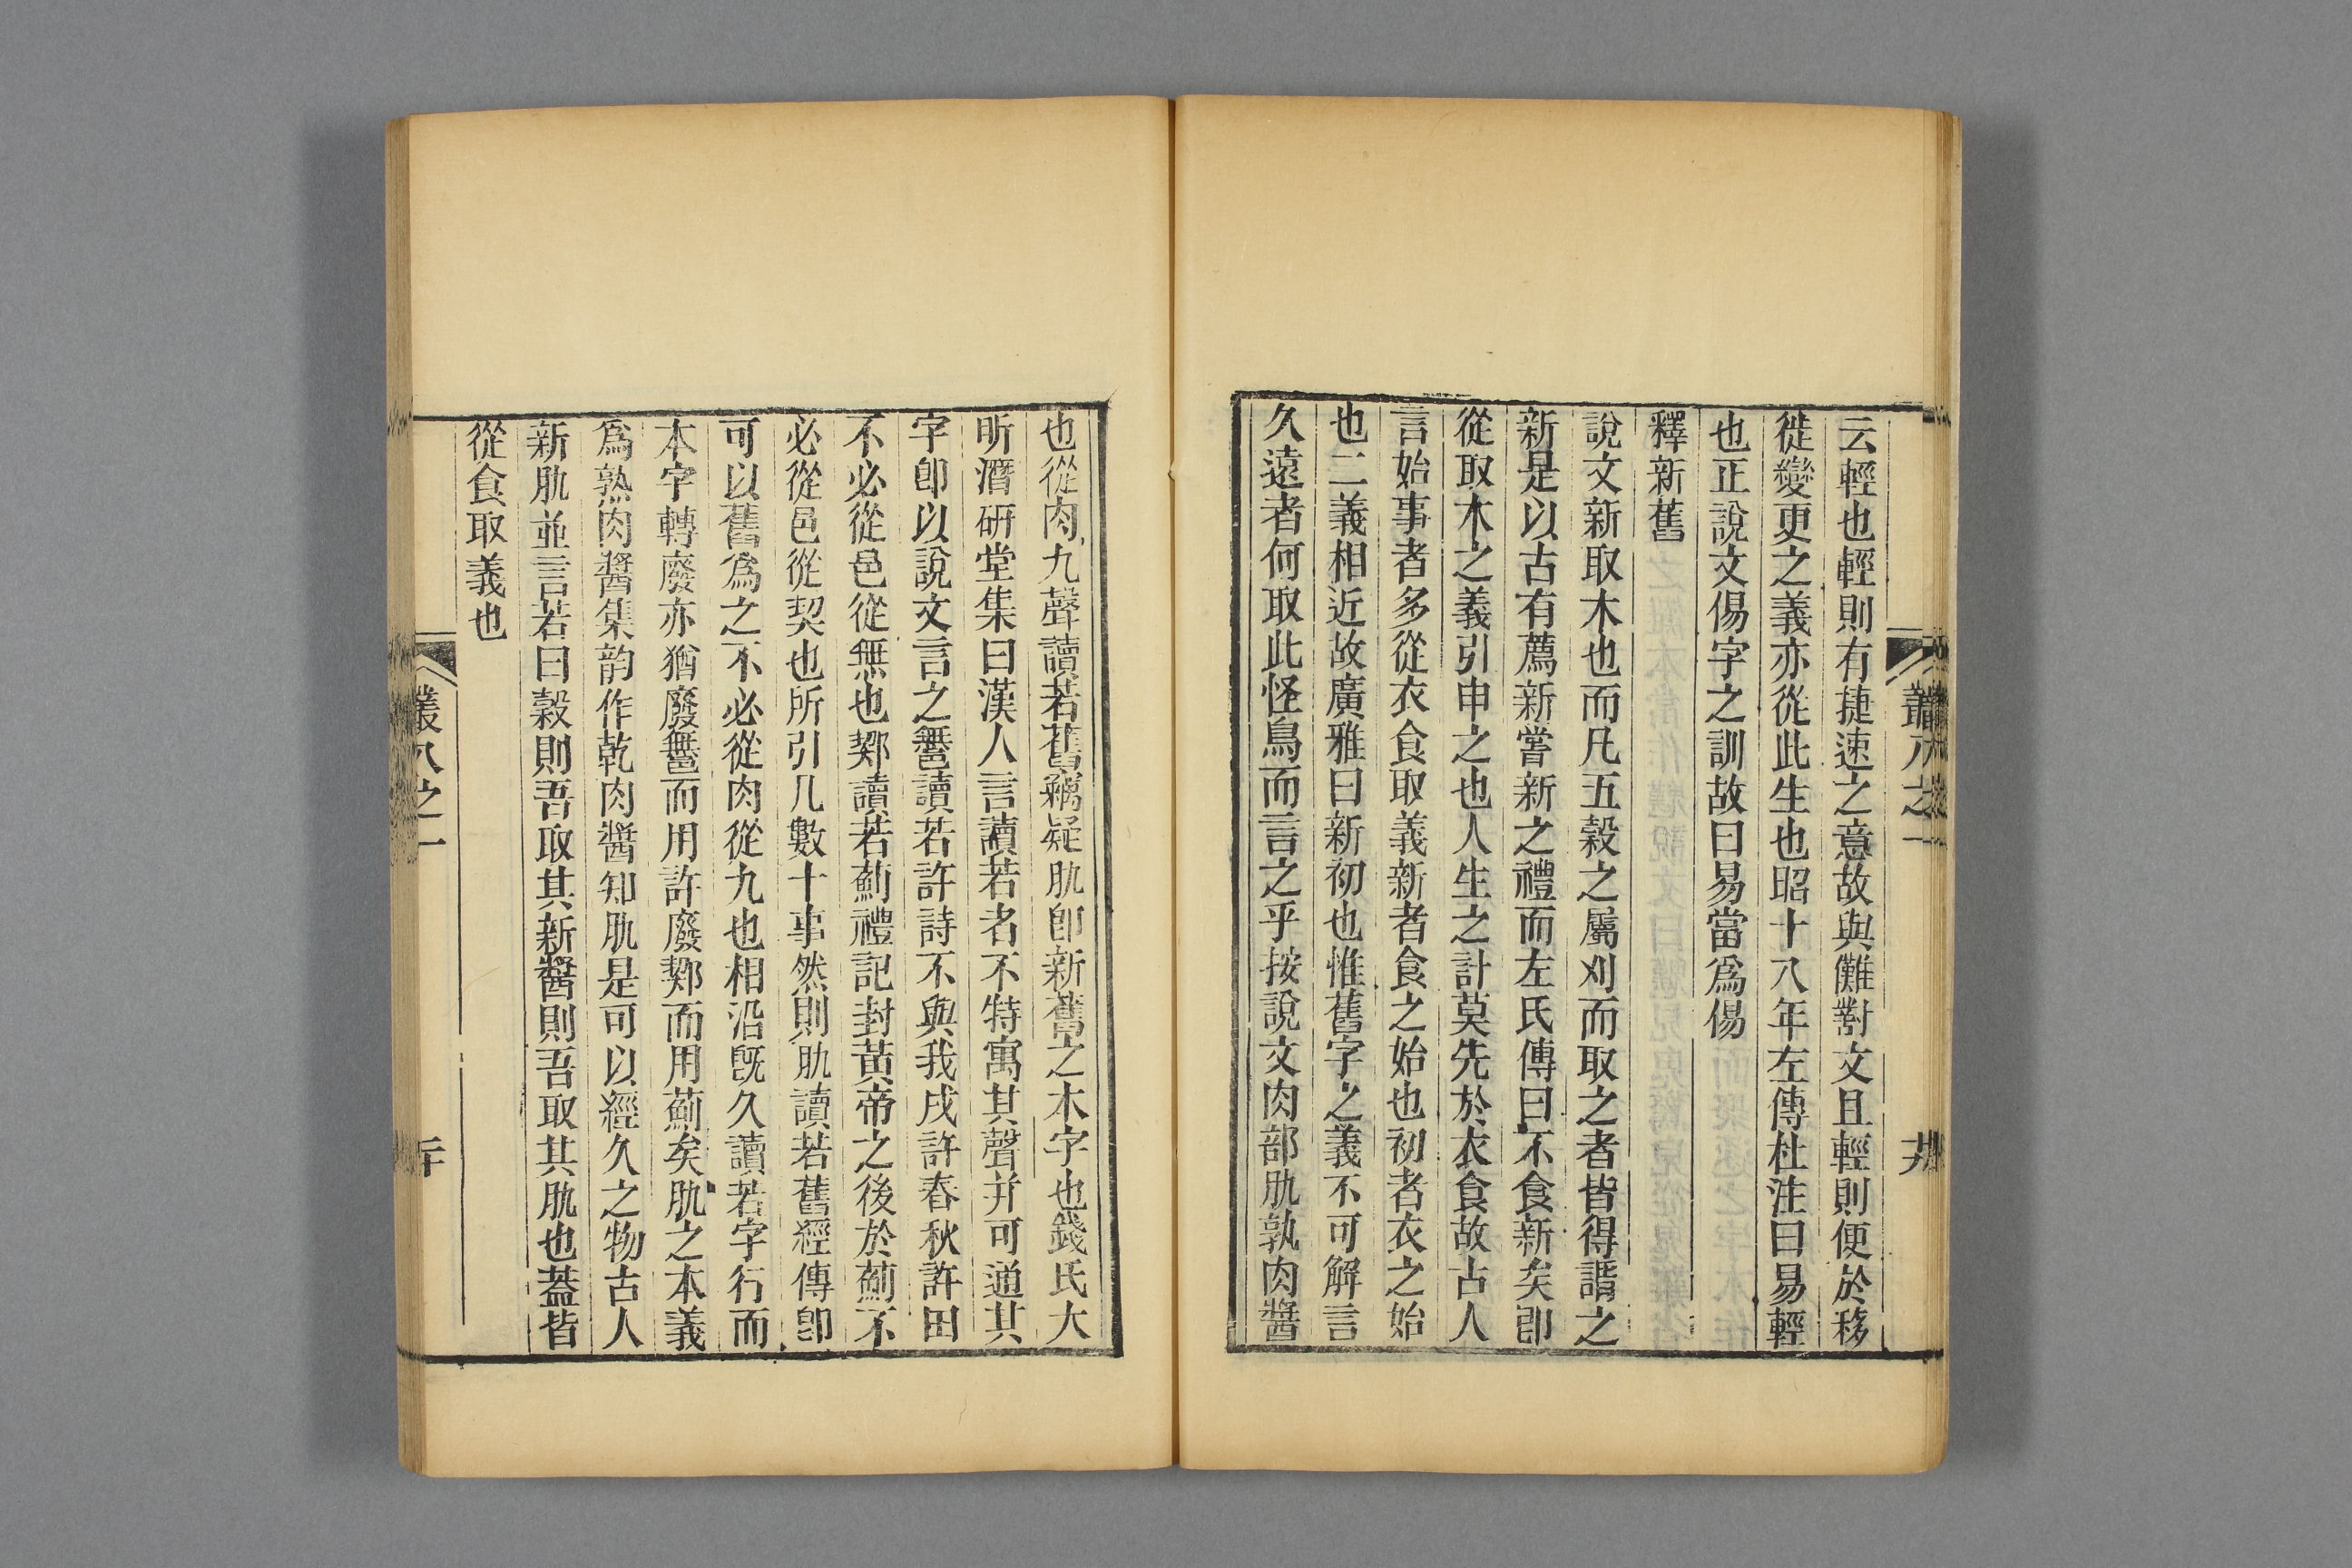 云輕也輕則有捷速之意故與儺對文且輕則便於移
徙變更之義亦從此生也昭十八年左傳杜注曰易輕
也正說文傷字之訓故曰易當爲傷
釋新舊
說文新取木也而凡五穀之屬刈而取之者皆得謂之
新是以古有薦新嘗新之禮而左氏傳曰不食新矣卽
從取木之義引申之也人生之計莫先於衣食故古人
言始事者多從衣食取義新者食之始也初者衣之始
也二義相近故廣雅曰新初也惟舊字之義不可解言
久遠者何取此怪鳥而言之乎按說文肉部肍孰肉醬
也從肉九聲讀若舊竊疑肍卽新舊之本字也錢氏大
昕潛研堂集曰漢人言讀若者不特寓其聲并可通其
字卽以說文言之鄦讀若許詩不與我戍許春秋許田
不必從邑從無也鄚讀若薊禮記封黃帝之後於薊不
必從邑從契也所引凡數十事然則肍讀若舊經傳卽
可以舊爲之不必從肉從九也相沿旣久讀若字行而
本字轉廢亦猶廢鄦而用許廢鄚而用薊矣肍之本義
爲孰肉醬集韵作乾肉醬知肍是可以經久之物古人
新肍並言若曰穀則吾取其新醬則吾取其肍也葢皆
從食取義也
叢八之一